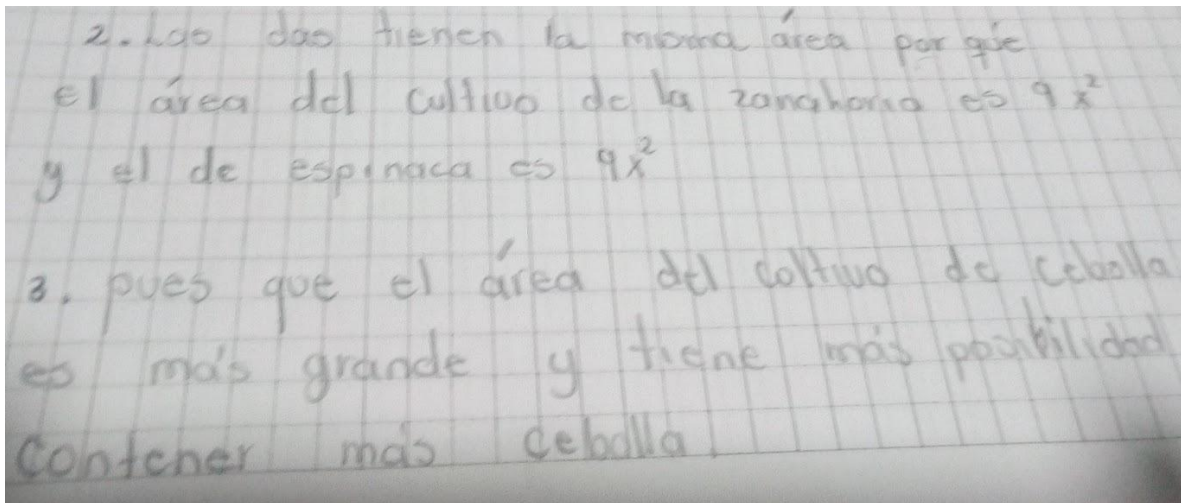 2. Las dos tienen la misma área por que
el área del cultivo de la zanahoria es 9x²
y el de espinaca es 9x²
3. pues que el área del coltivo de cebolla
es más grande y tiene más posibilidad
contener más cebolla